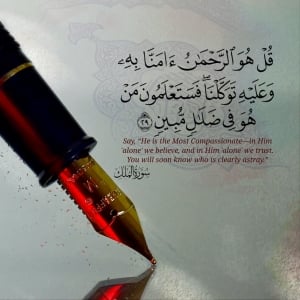 قُلْ هُوَ ٱلرَّحْمَٰنُ ءَامَنَّا بِهِۦ
وَعَلَيْهِ تَوَكَّلْنَا ۖ فَسَتَعْلَمُونَ مَنْ
هُوَ فِى ضَلَٰلٍ مُّبِينٍ ٢٩
Say, "He is the Most Compassionate—in Him
˹alone˺ we believe, and in Him ˹alone˺ we trust.
You will soon know who is clearly astray."
سُورَةُ الْمُلْك